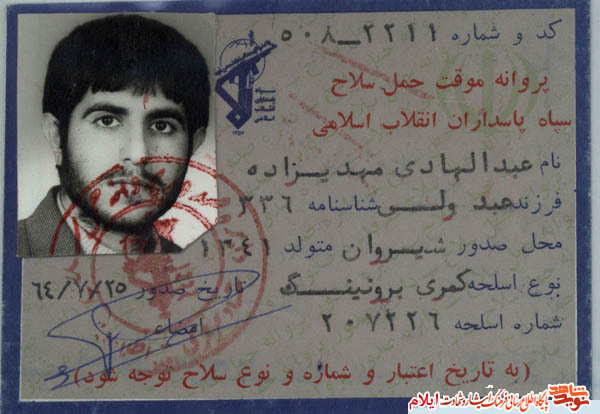 کد و شماره ۲۲۱۱ــ۵۰۸
پروانه موقت حمل سلاح
سپاه پاسداران انقلاب اسلامی
سپاه
پاسداران
انقلاب
اسلامی
۱۳۵۷
نام عبدالهادی مهدیزاده
فرزند عبد ولـــی شناسنامه ۳۳۶
محل صدور شیروان متولد ۱۳۴۱
نوع اسلحه کمری برونینــگ
تاریخ صدور ۶۴/۷/۲۵
شماره اسلحه ۲۰۷۲۲۶
امضاء
(به تاریخ اعتبار و شماره و نوع سلاح توجه شود)
نوید شاهد
ایلام